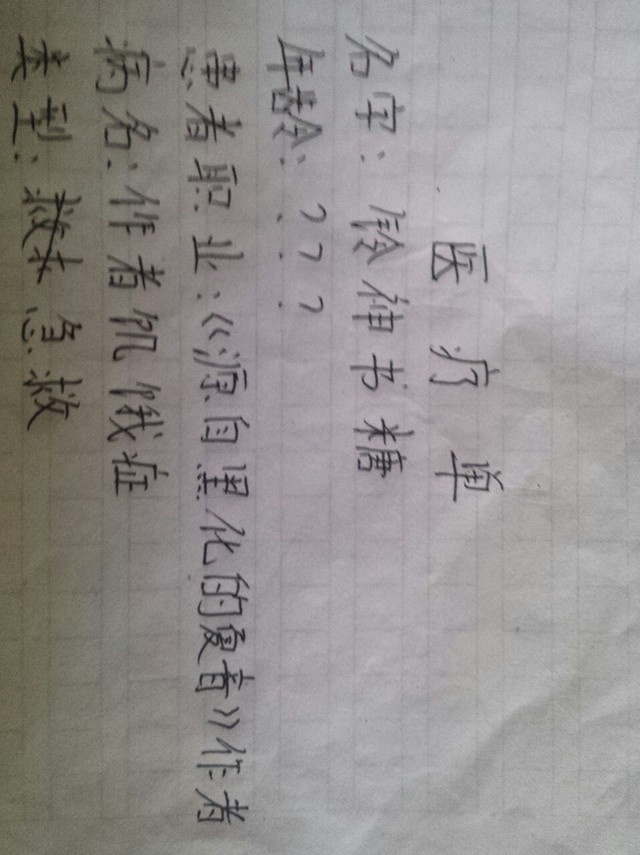 医疗单
名字：铃仲书糖
年龄：？？？
患者职业：《源自黑化的复音》作者
病名：作者饥饿症
类型：急救